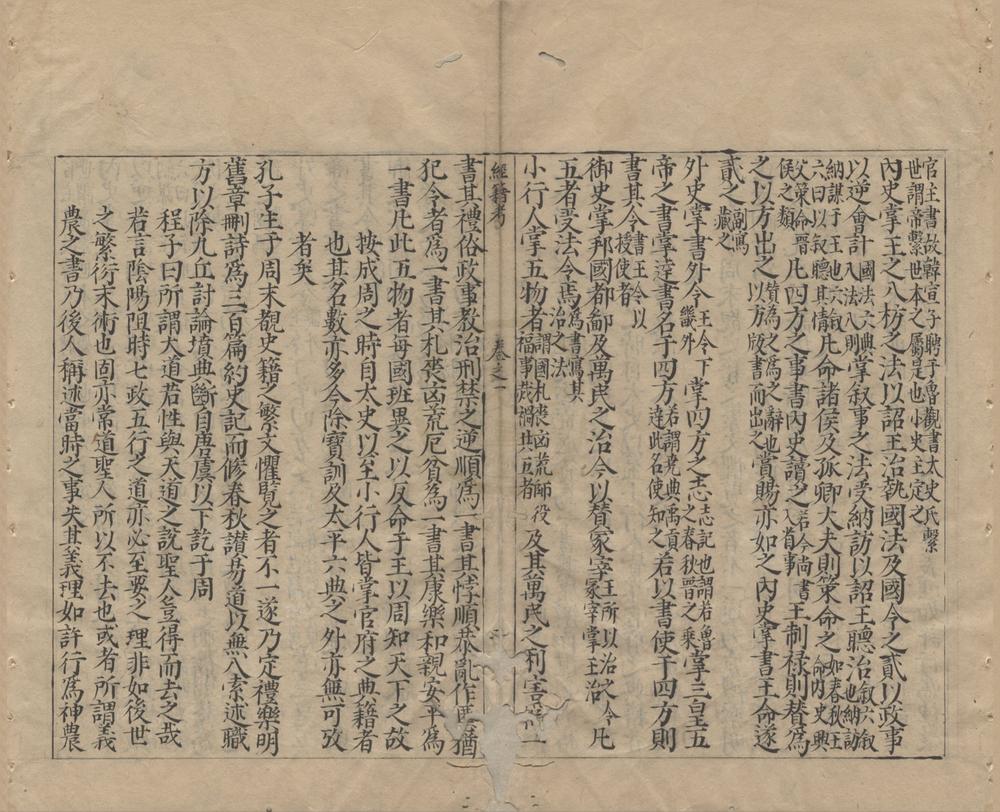 官主書故韓宣子聘于魯觀書太史氏繫
世謂帝繫世本之屬是也小史主定之
內史掌王之八枋之法以詔王治執國法及國令之貳以政事
以逆會計國法六典八法八則掌叙事之法受納訪以詔王聽治叙六叙也納訪
納謀于王也六叙六曰以叙聽其情凡命諸侯及孤卿大夫則策命之如春秋王命內史興
父策命晉侯之類凡四方之事書內史讀之若今尚書入省事王制祿則贊為
之以方出之贊為之為之辭也以方版書而出之賞賜亦如之內史掌書王命遂
貳之副寫藏之
外史掌書外令王令下畿外掌四方之志志記也謂若魯之春秋晉之乘掌三皇五
帝之書掌達書名于四方若謂堯典禹貢達此名使知之若以書使于四方則
書其令書王令以授使者
御史掌邦國都鄙及萬民之治令以贊冢宰王所以治之令冢宰掌王治凡
五者受法令焉為書寫其治之法
小行人掌五物者謂國札喪凶荒師役福事烖禍共五者及其萬民之利害為一
經籍考 卷之一
書其禮俗政事教治刑禁之逆順為一書其悖順暴亂作慝猶
犯令者為一書其札喪凶荒厄貧為一書其康樂和親安平為
一書凡此五物者每國班異之以反命于王以周知天下之故
按成周之時自太史以至小行人皆掌官府之典籍者
也其名數亦多今除寶訓及太平六典之外亦無可攷
者矣
孔子生于周末覩史籍之繁文懼覧之者不一遂乃定禮樂明
舊章刪詩為三百篇約史記而修春秋讃昜道以無八索述職
方以除九丘討論墳典斷自唐虞以下訖于周
程子曰所謂大道若性與天道之說聖人豈得而去之哉
若言陰陽四時七政五行之道亦必至要之理非如後世
之繁衍末術也固亦常道聖人所以不去也或者所謂羲
農之書乃後人稱述當時之事失其義理如許行為神農